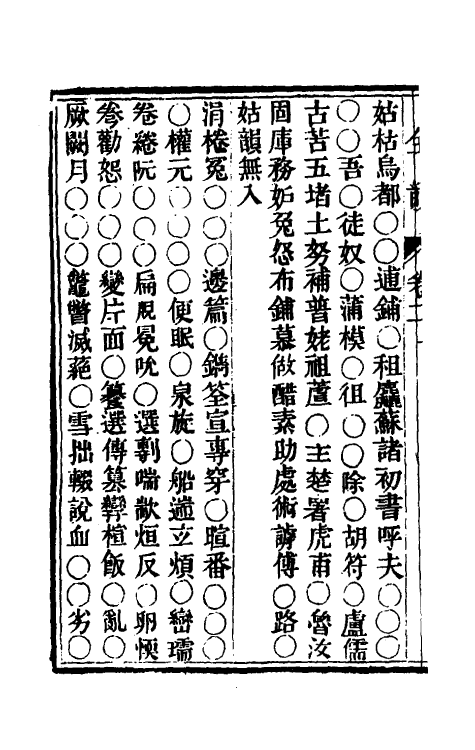 姑枯烏都〇〇逋鋪〇租麤蘇諸初書呼夫〇〇〇
〇〇吾〇徒奴〇蒲模〇徂〇〇除〇胡符〇盧儒
古苦五堵土努補普姥祖蘆〇主楚署虎甫〇魯汝
固庫務妒兔怒布鋪慕做醋素助處術謼傅〇路〇
姑韻無入
涓棬冤〇〇〇邊篇〇鐫筌宣專穿〇暄番〇〇〇
〇權元〇〇〇〇便眠〇泉旋〇船遄立煩〇巒瓀
卷綣阮〇〇〇扁𡰪冕吮〇選剸喘歂烜反〇卵愞
眷勸怨〇〇〇變片面〇籑選傳篡𡡗楦飯〇亂〇
厥闕月〇〇〇鼈瞥滅蕝〇雪拙輟說血〇〇劣〇